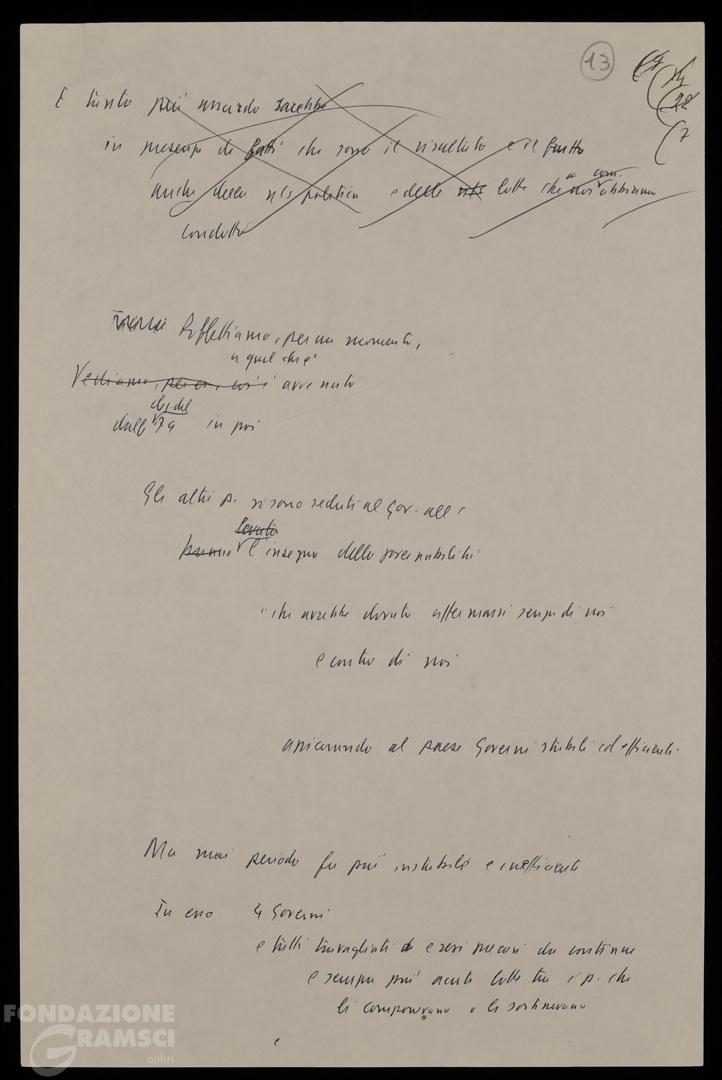 13
E tanto più assurdo sarebbe
in presenza di fatti che sono il risultato e il frutto
anche della ns politica e delle lotte che noi abbiamo
condotto
Riflettiamo, per un momento,
a quel che è
Vediamo, per es, cos'è avvenuto
dall' 79 in poi
Gli altri p. si sono seduti al Gov. all'
levata
hanno l'insegna della governabilità
che avrebbe dovuto affermarsi senza di noi
e contro di noi
assicurando al paese Governi stabili ed efficienti
Ma mai periodo fu più instabile e inefficiente
In esso 4 Governi
e tutti travagliati e resi precari da continue
e sempre più acute lotte tra i p. che
li componevano o li sostenevano
FONDAZIONE
GRAMSCI
onlus